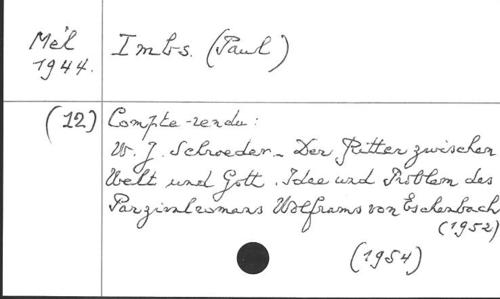 Mél
1944.
Imbs. (Paul)
(12)
Compte-rendu:
W. J. Schroeder._ Der Ritter zwischen
Welt und Gott. Idee und Problem des
Parzivalromans Wolframs von Eschenbach
(1952)
(1954)